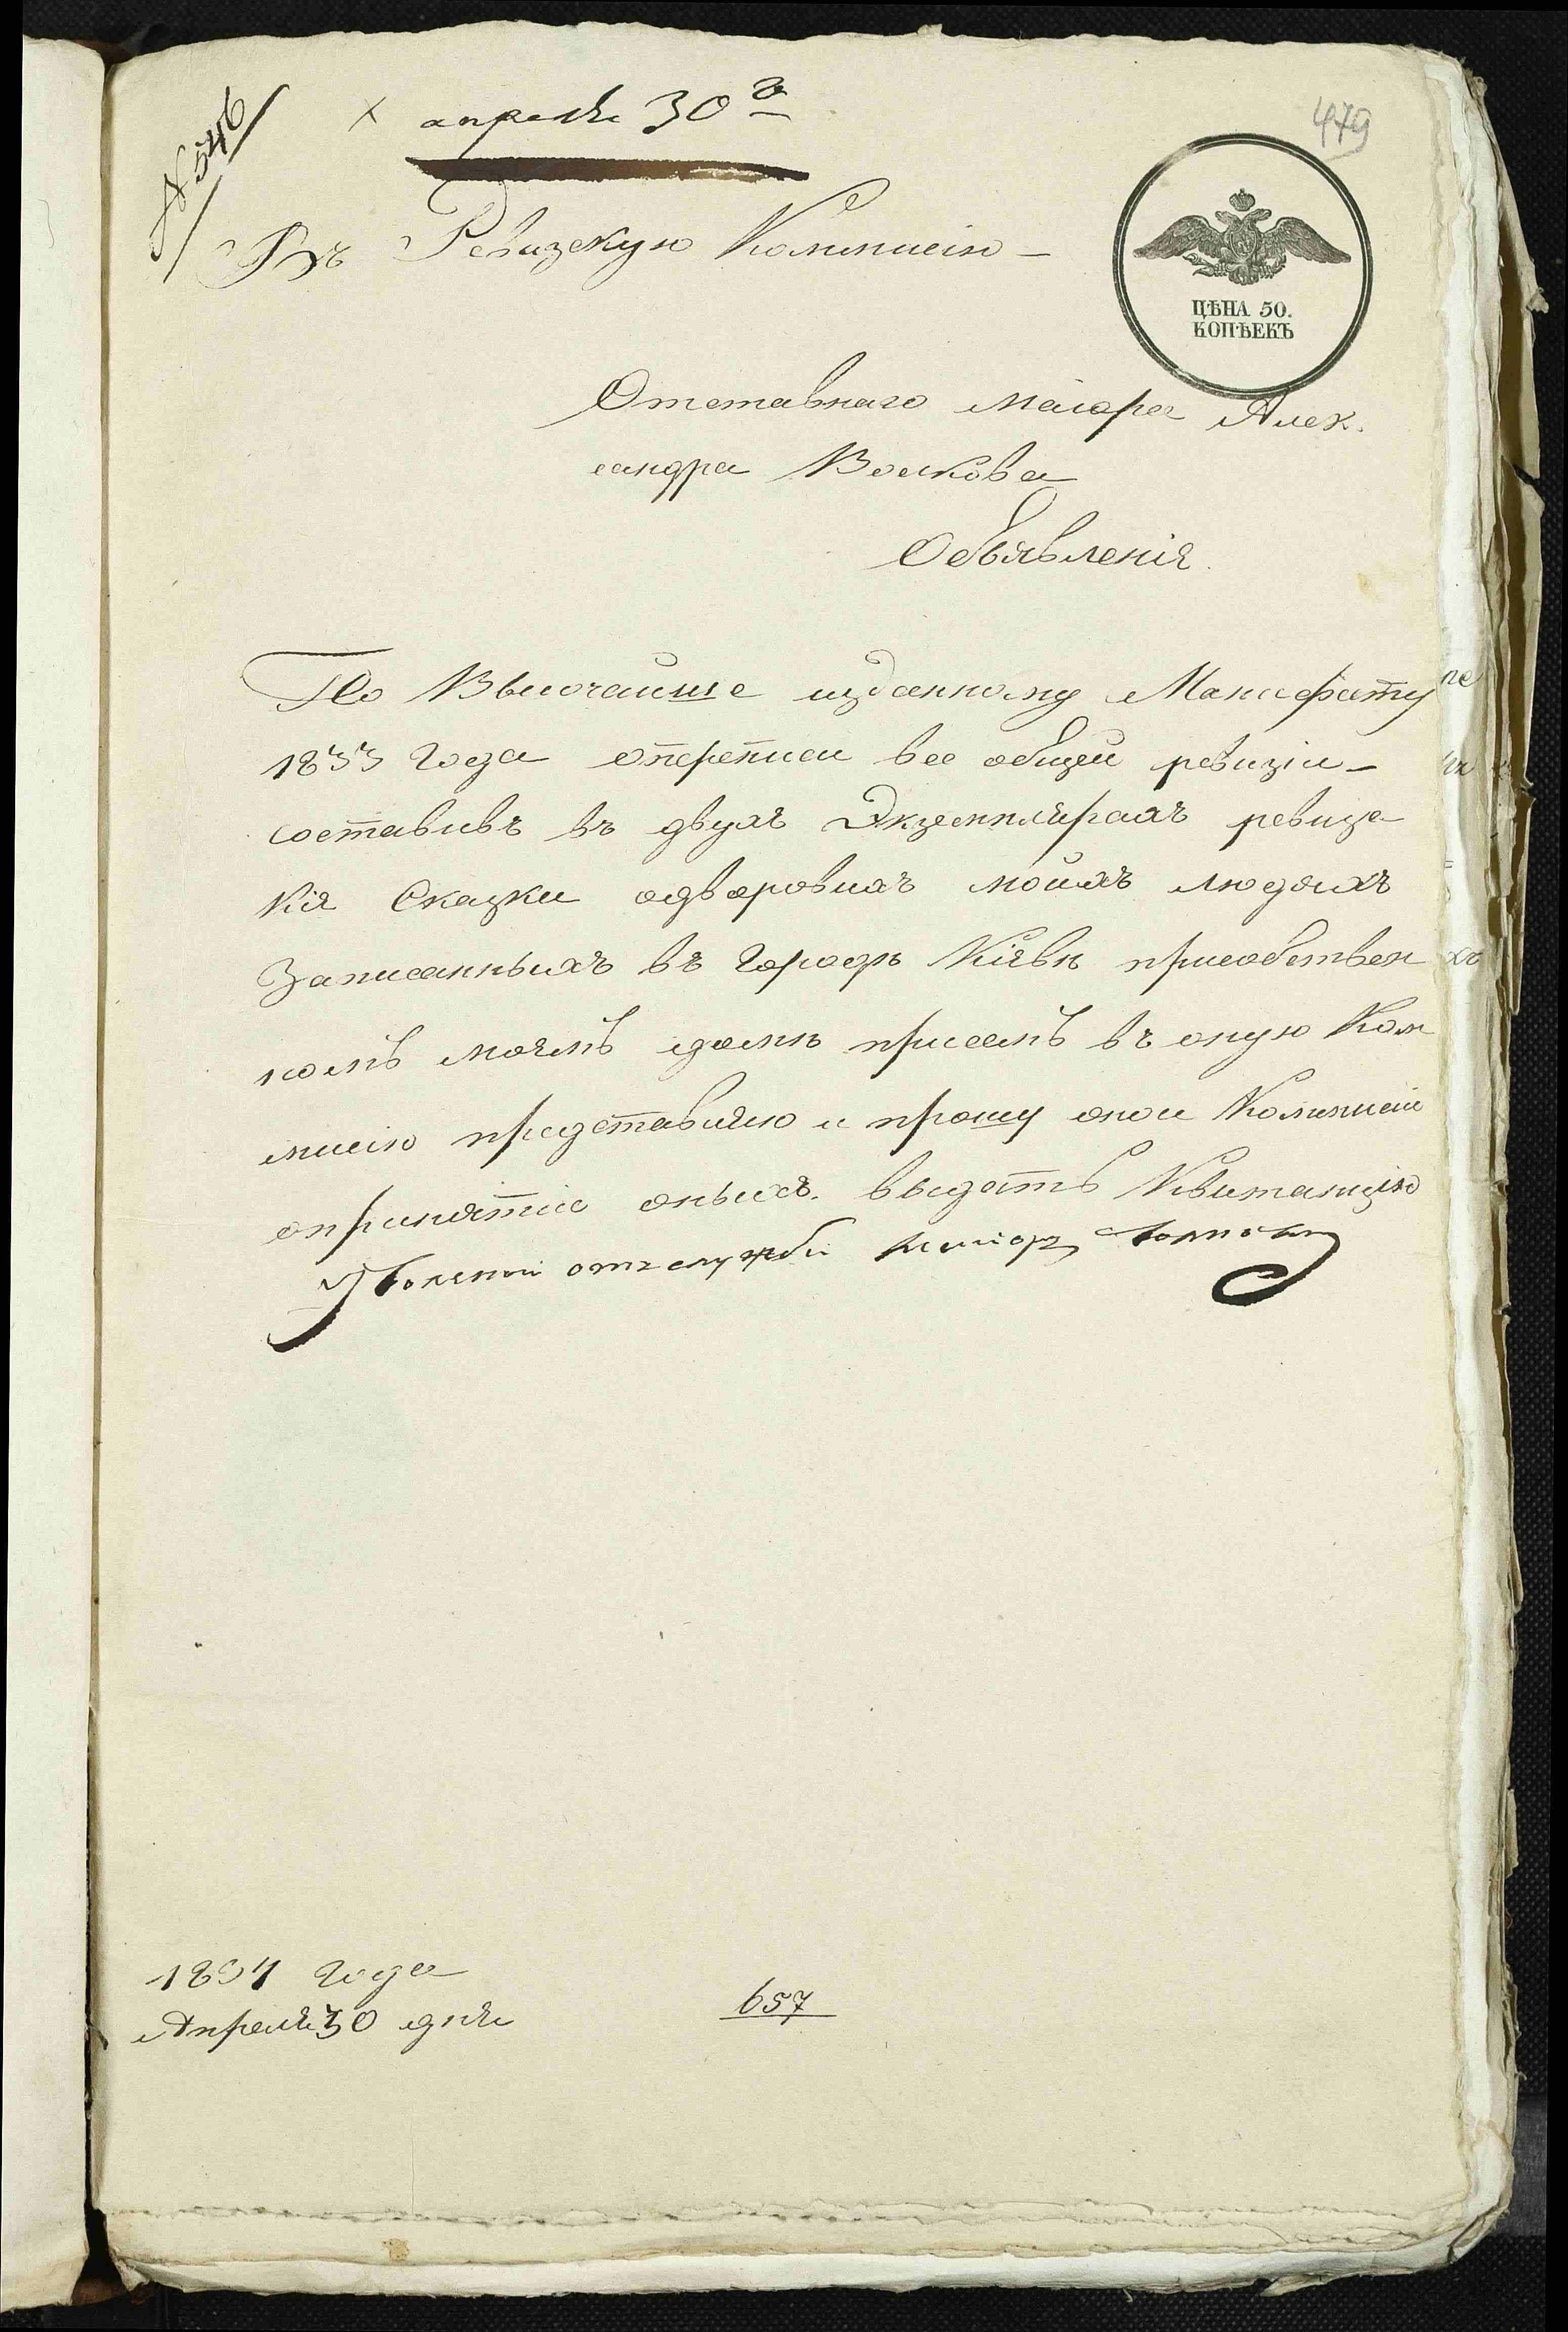 № 546
× апреля 30го
479
Въ Ревизскую Коммисію
ЦѢНА 50.
КОПѢЕКЪ
Отставнаго Маіора Алек.
сандра Волкова
Объявленія.
По Высочайше изданному Манифесту
1833 года оперепиеи все общей ревизіи
составивъ въ двухъ Экземплярахъ ревизс
кія Сказки одворовыхъ моихъ людяхъ
Записанныхъ въ городѣ Кіявѣ присобствен
номъ моемъ домѣ присемъ въ оную Ком
мисію представляю и прошу оной Коммисіи
опринятіи оныхъ выдать Квитанцію
Уволеной отъ службы Маиоръ Волковъ
1834 года
Апреля 30 дня
657